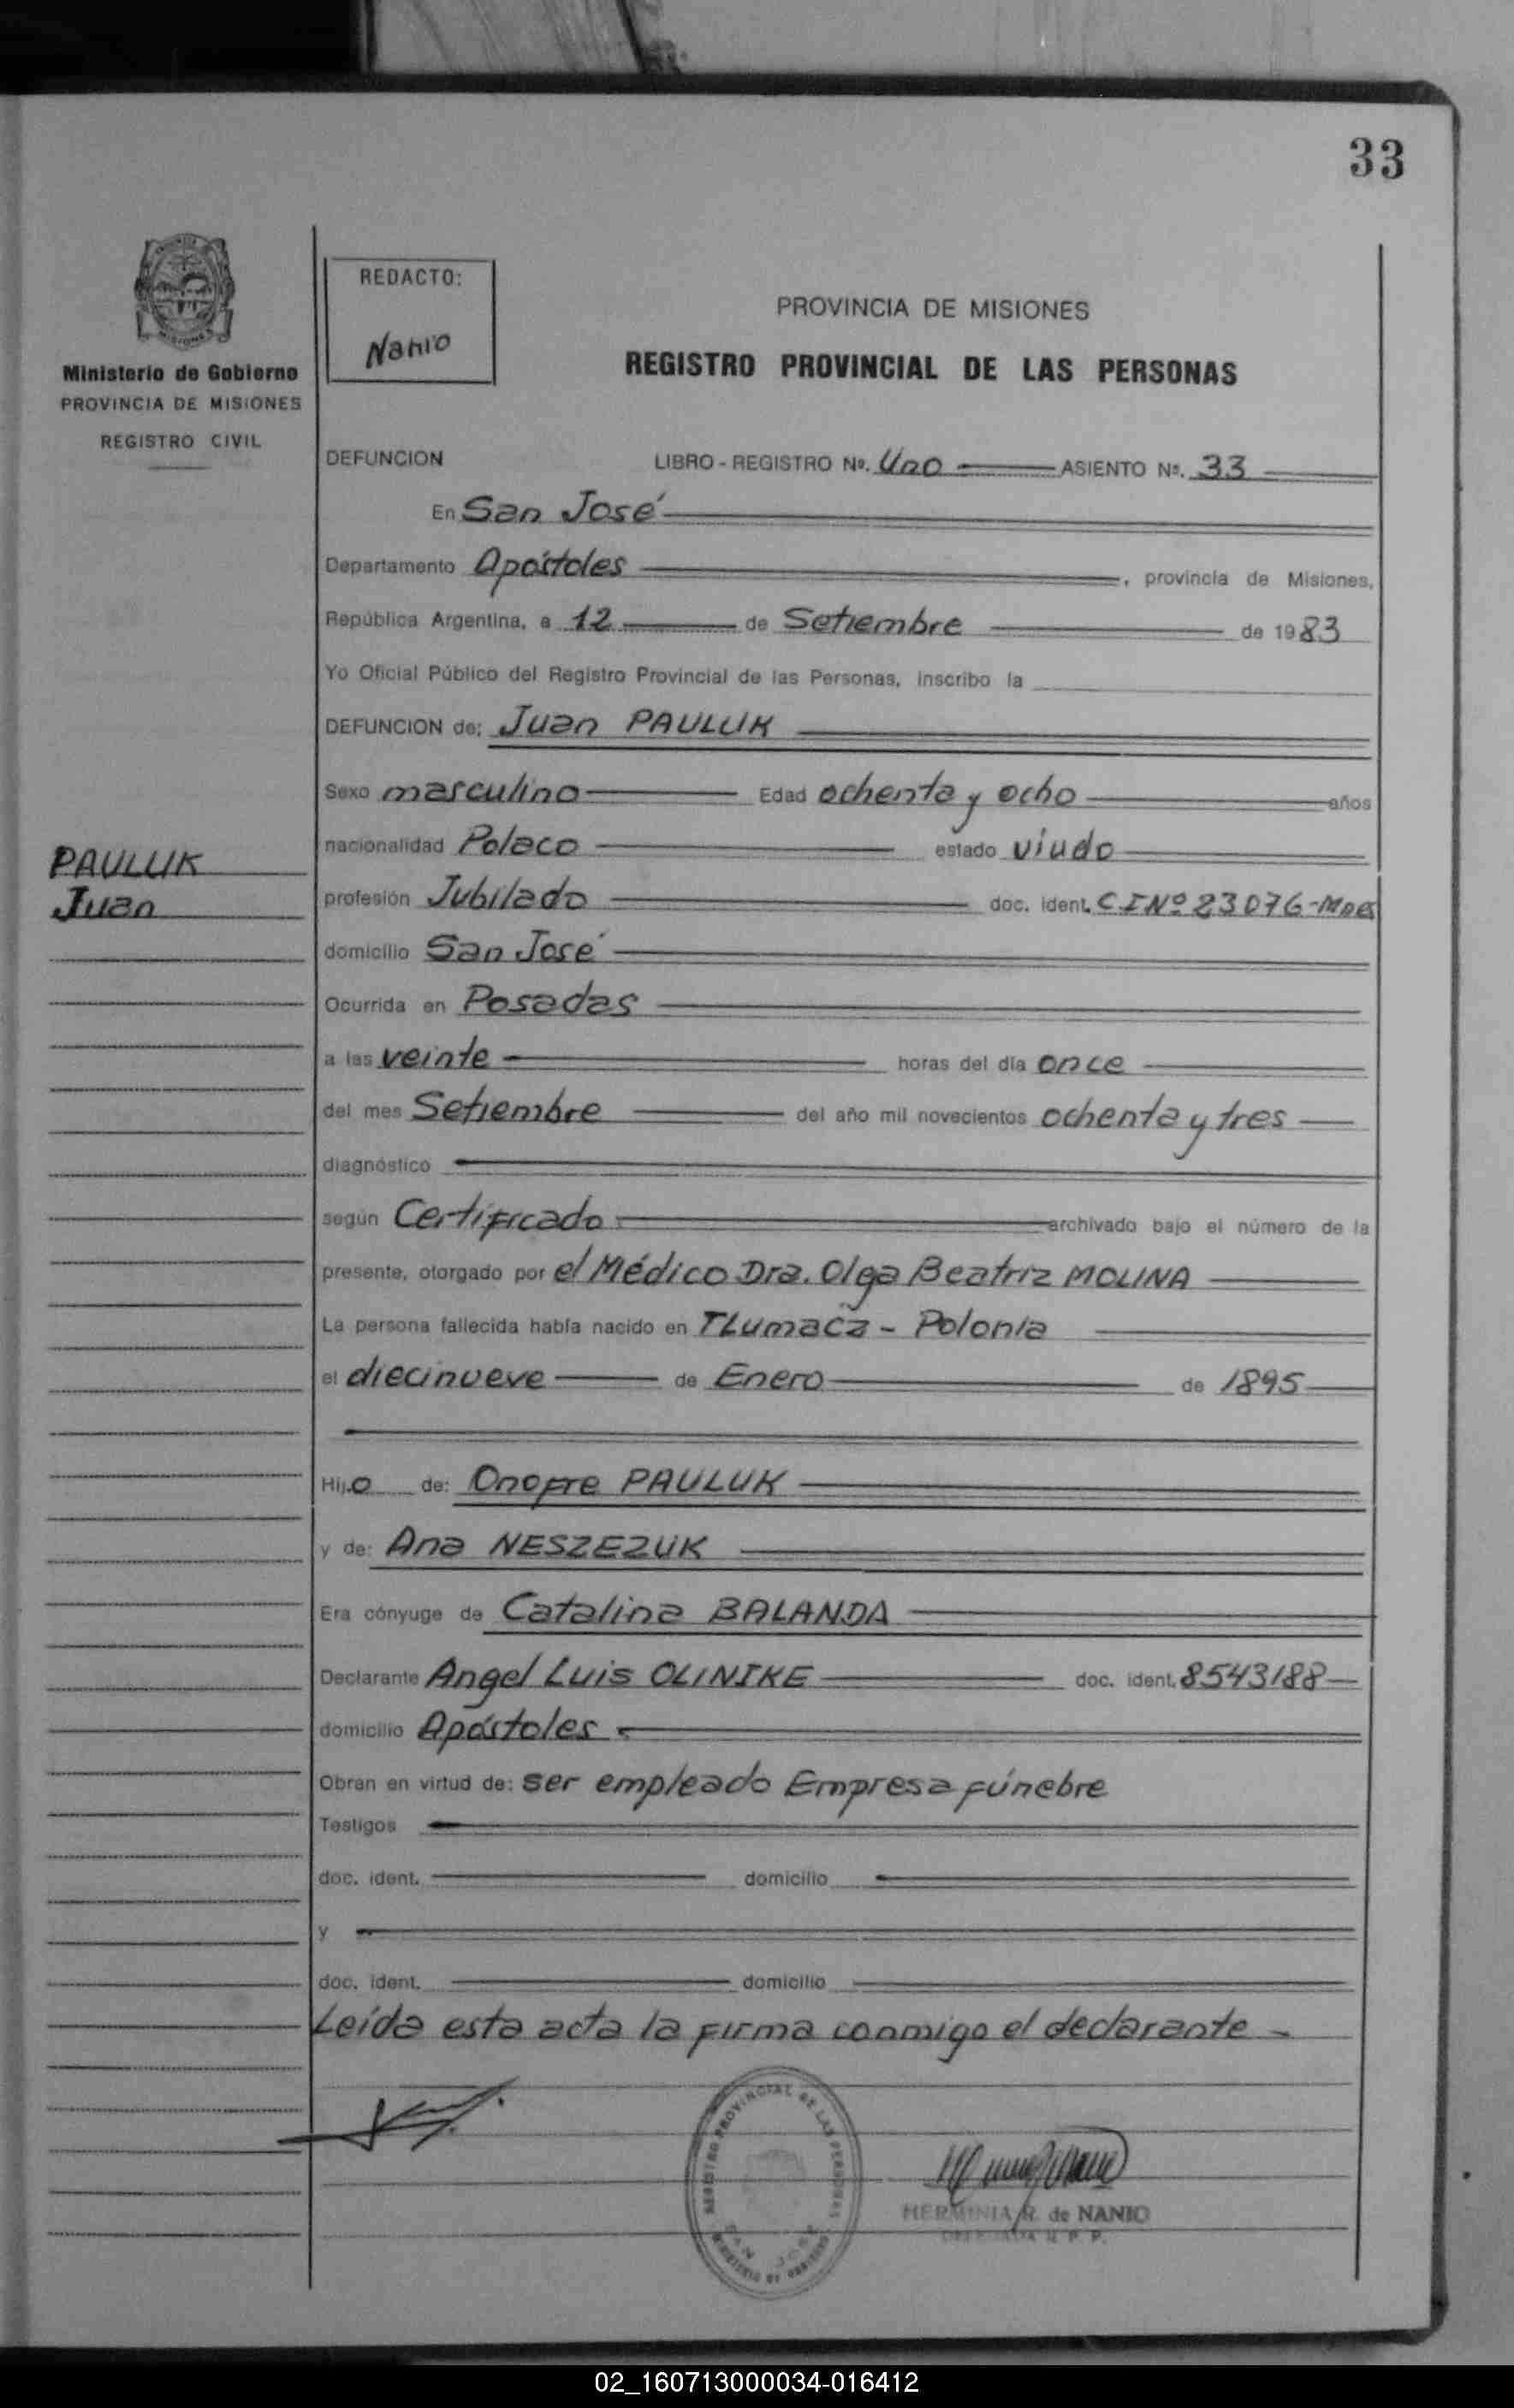 33
REDACTO:
Nanio
Ministerio de Gobierno
PROVINCIA DE MISIONES
REGISTRO CIVIL
PROVINCIA DE MISIONES
REGISTRO PROVINCIAL DE LAS PERSONAS
DEFUNCION LIBRO - REGISTRO Nº. Uno ASIENTO Nº. 33
En San José
Departamento Apóstoles, provincia de Misiones,
República Argentina, a 12 de Setiembre de 1983
Yo Oficial Público del Registro Provincial de las Personas, inscribo la
DEFUNCION de: Juan PAULUK
Sexo masculino Edad ochenta y ocho años
nacionalidad Polaco estado viudo
PAULUK
Juan
profesión Jubilado doc. ident. C I Nº 23076-Mnes
domicilio San José
Ocurrida en Posadas
a las veinte horas del día once
del mes Setiembre del año mil novecientos ochenta y tres
diagnóstico
según Certificado archivado bajo el número de la
presente, otorgado por el Médico Dra. Olga Beatriz MOLINA
La persona fallecida había nacido en TLumacz - Polonia
el diecinueve de Enero de 1895
Hijo de: Onofre PAULUK
y de: Ana NESZEZUK
Era cónyuge de Catalina BALANDA
Declarante Angel Luis OLINIKE doc. ident. 8543188
domicilio Apóstoles
Obran en virtud de: ser empleado Empresa fúnebre
Testigos
doc. ident. domicilio
y
doc. ident. domicilio
Leída esta acta la firma conmigo el declarante -
REGISTRO PROVINCIAL DE LAS PERSONAS
SAN JOSE
MINISTERIO DE GOBIERNO
HERMINIA R. de NANIO
DELEGADA R. P. P.
02_160713000034-016412